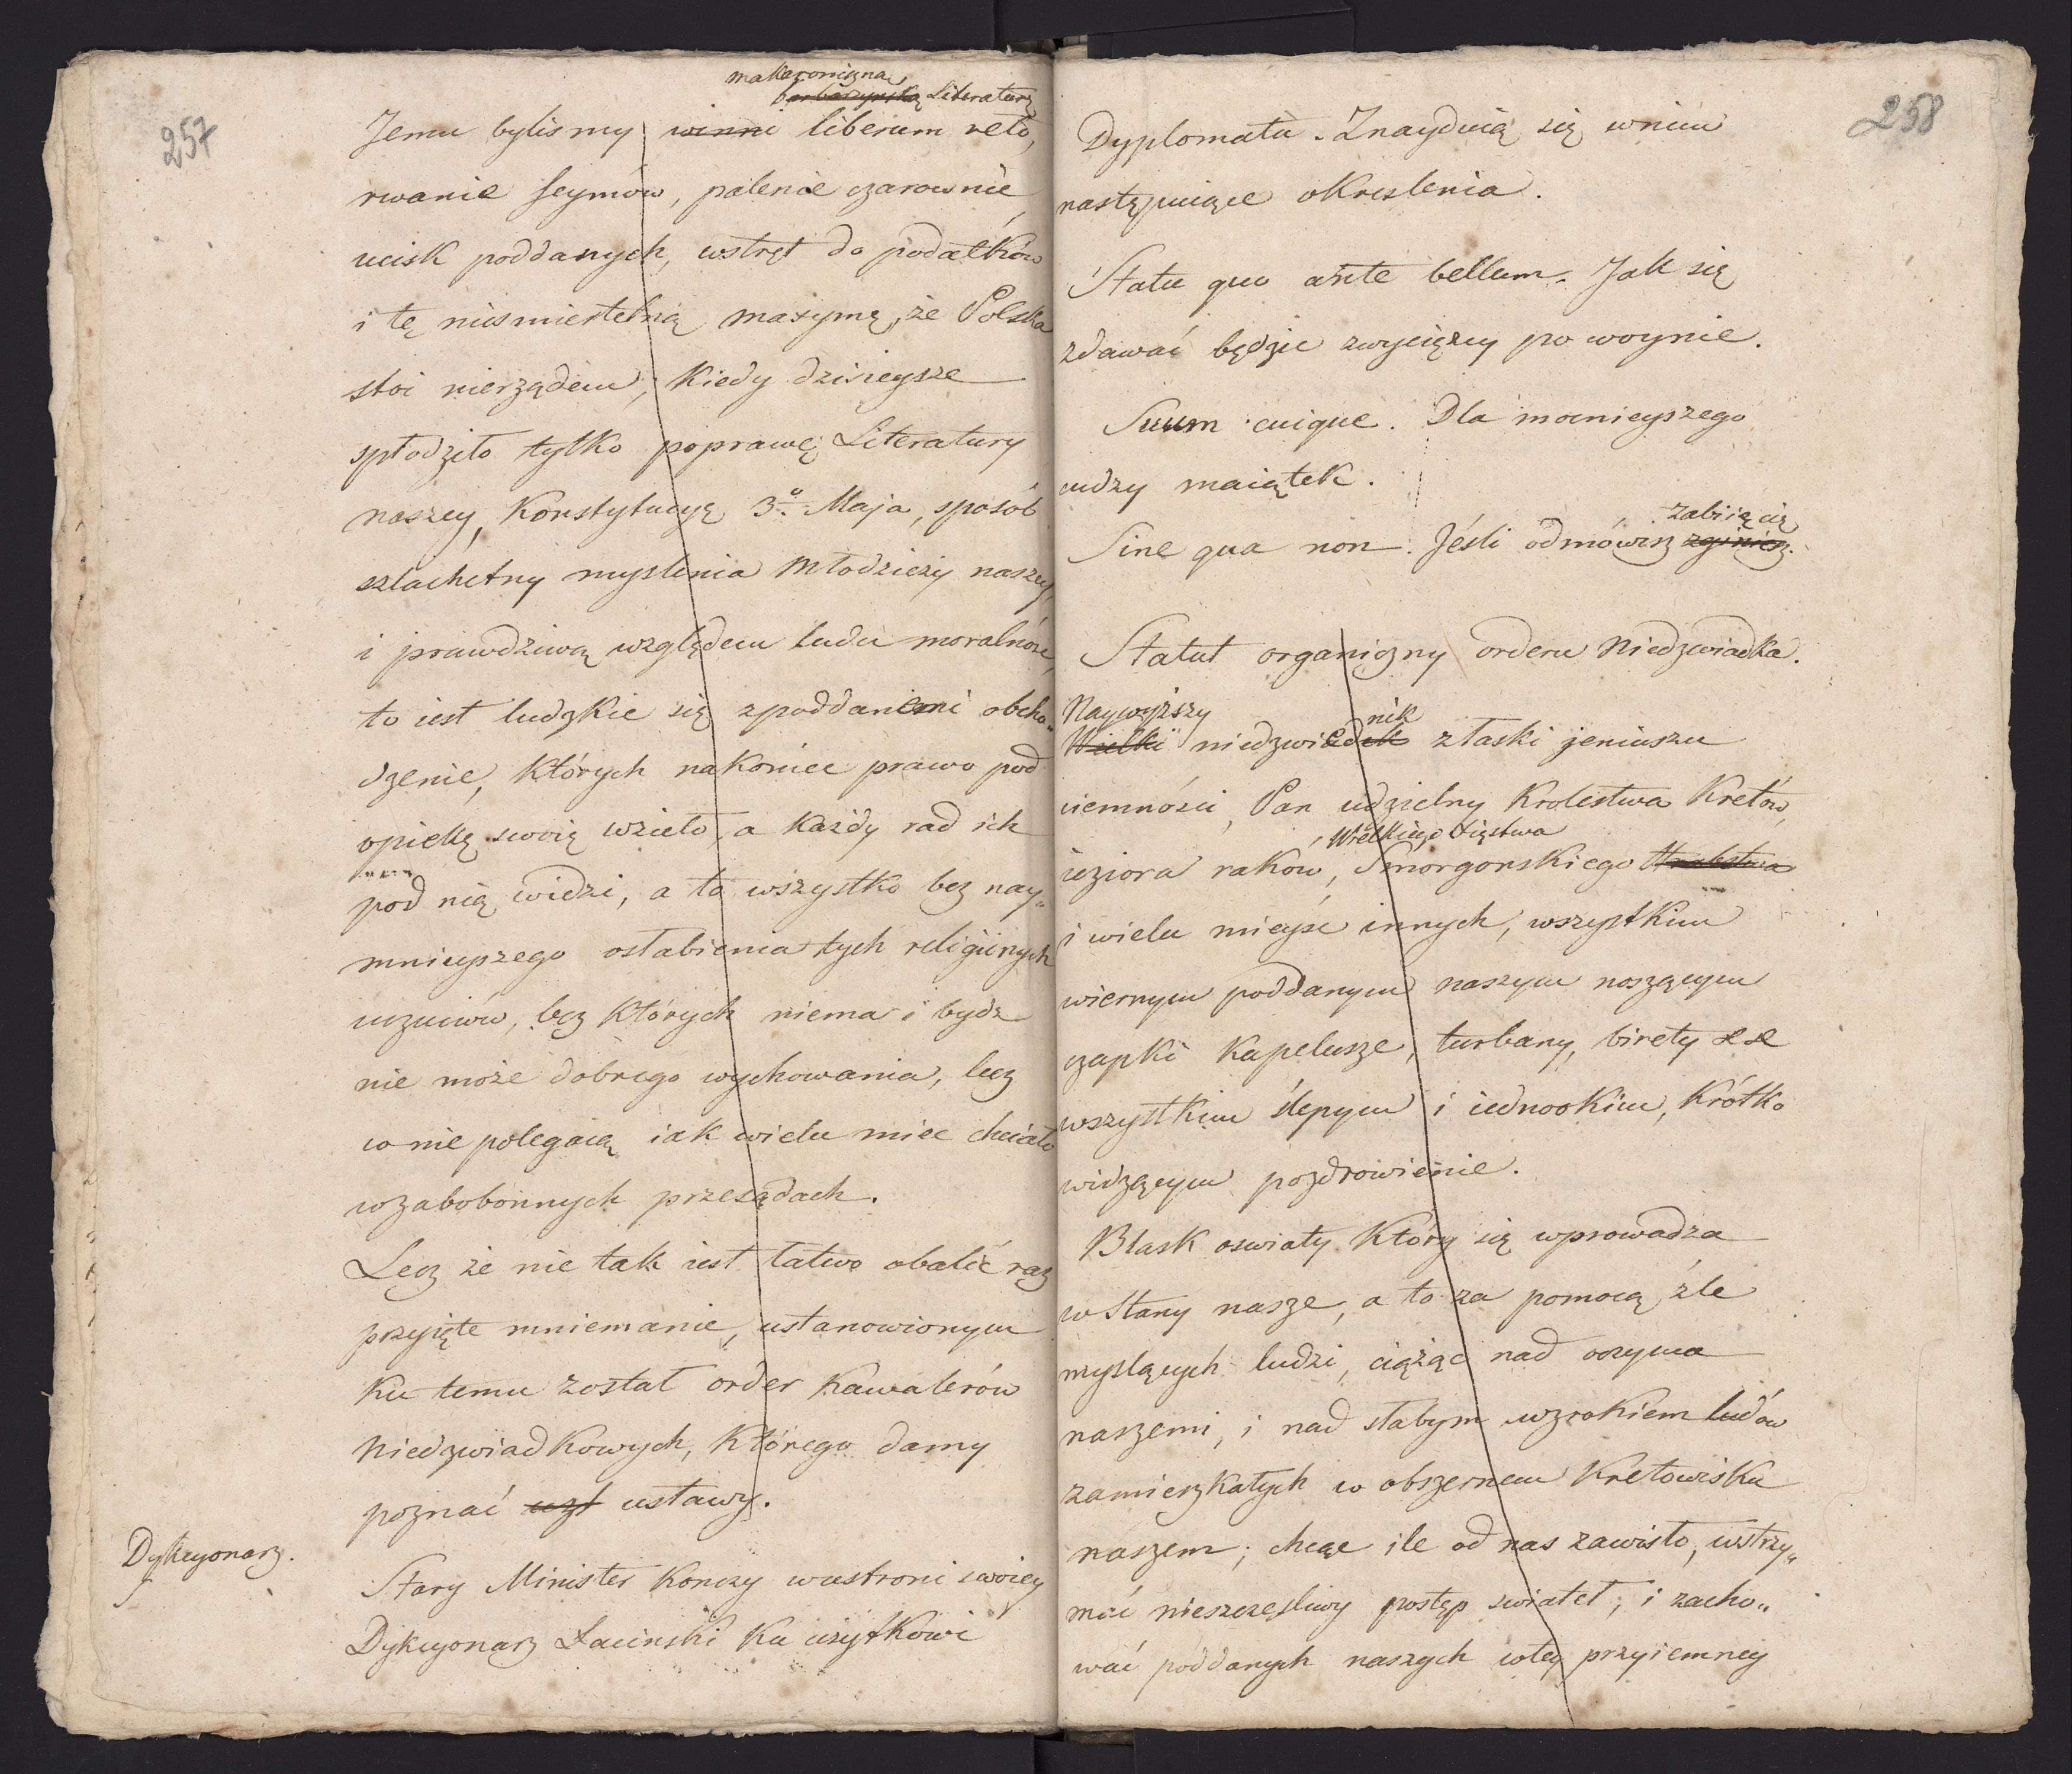 257
makaroniczną
barbarzynską Literaturę
Jemu bylismy winni liberum veto,
rwanie seymów, palenie czarownic
ucisk poddanych, wstręt do podatków
i tę nieśmiertelną maxymę, że Polska
stoi nierządem, kiedy dzisieysze
spłodziło tylko poprawę Literatury
naszey, Konstytucyę 3º Maja, sposób
szlachetny myslenia młodzieży naszey,
i prawdziwą względem ludu moralność,
to iest ludzkie się z poddanemi obcho„
dzenie, których nakoniec prawo pod
opiekę swoią wzieło, a każdy rad ich
pod nią widzi, a to wszystko bez nay„
mnieyszego osłabienia tych religiinych
uczuciów, bez których niema i bydz
nie może dobrego wychowania, lecz
co nie polegaią iak wielu miec chciało
w zabobonnych przesądach.
Lecz że nie tak iest łatwo obalić raz
przyięte mniemanie, ustanowionym
ku temu został order Kawalerów
Niedzwiadkowych, którego damy
poznać uzt ustawy.
Dykcyonarz.
Stary Minister kończy w ustroni swoiey
Dykcyonarz Łaciński ku użytkowi
258
Dyplomatu. Znayduią się w nim
następuiące okreslenia.
Statu quo ante bellum. Jak się
zdawać będzie zwycięzcy po woynie.
Suum cuique. Dla mocnieyszego
cudzy maiątek.
zabiią cię
Sine qua non. Jeśli odmówisz zginiesz.
Statut organiczny orderu Niedzwiadka.
Naywyższy nik
Wielki niedzwiedek z łaski jeniuszu
ciemności, Pan udzielny Krolestwa Kretów,
Wielkiego Xięstwa
ieziora raków, Smorgonskiego Hrabstwa
i wielu mieysc innych, wszystkim
wiernym poddanym naszym noszącym
czapki kapelusze, turbany, birety &c
wszystkim ślepym i iednookim, krótko
widzącym pozdrowienie.
Blask oswiaty który się wprowadza
w Stany nasze, a to za pomocą źle
myslących ludzi, ciążąc nad oczyma
naszemi, i nad słabym wzrokiem ludów
zamieszkałych w obszernem kretowisku
naszem; chcąc ile od nas zawisło, wstrzy„
mać nieszczęsliwy postęp swiateł, i zacho„
wać poddanych naszych w tey przyiemney